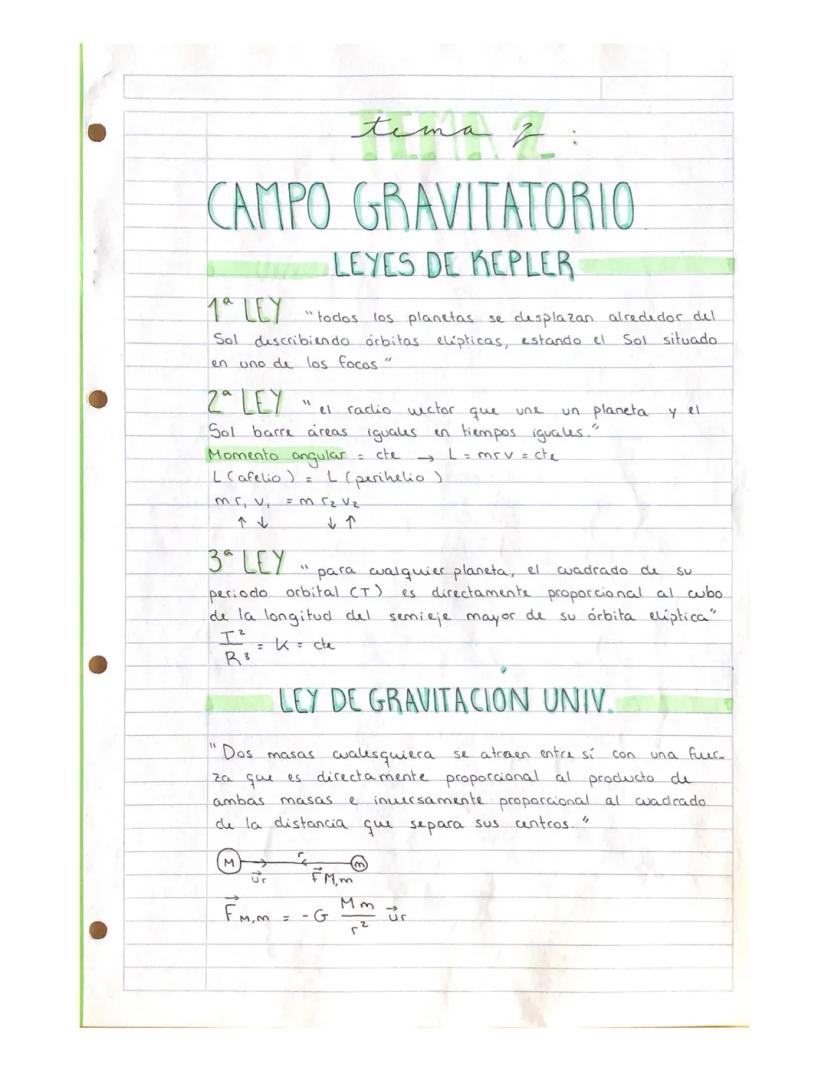 tema 2:
CAMPO GRAVITATORIO
LEYES DE KEPLER
1ª LEY "todos los planetas se desplazan alrededor del
Sol describiendo órbitas elípticas, estando el Sol situado
en uno de los focos"
2ª LEY "el radio vector que une un planeta y el
Sol barre áreas iguales en tiempos iguales."
Momento angular = cte → L = mrv = cte
L (afelio) = L (perihelio)
m r₁ v₁ = m r₂ v₂
↑ ↓ ↓ ↑
3ª LEY "para cualquier planeta, el cuadrado de su
periodo orbital (T) es directamente proporcional al cubo
de la longitud del semieje mayor de su órbita elíptica"
T²/R³ = K = cte
LEY DE GRAVITACIÓN UNIV.
"Dos masas cualesquiera se atraen entre sí con una fuer-
za que es directamente proporcional al producto de
ambas masas e inversamente proporcional al cuadrado
de la distancia que separa sus centros."
M r m
u⃗r F⃗M,m
F⃗M,m = -G Mm/r² u⃗r